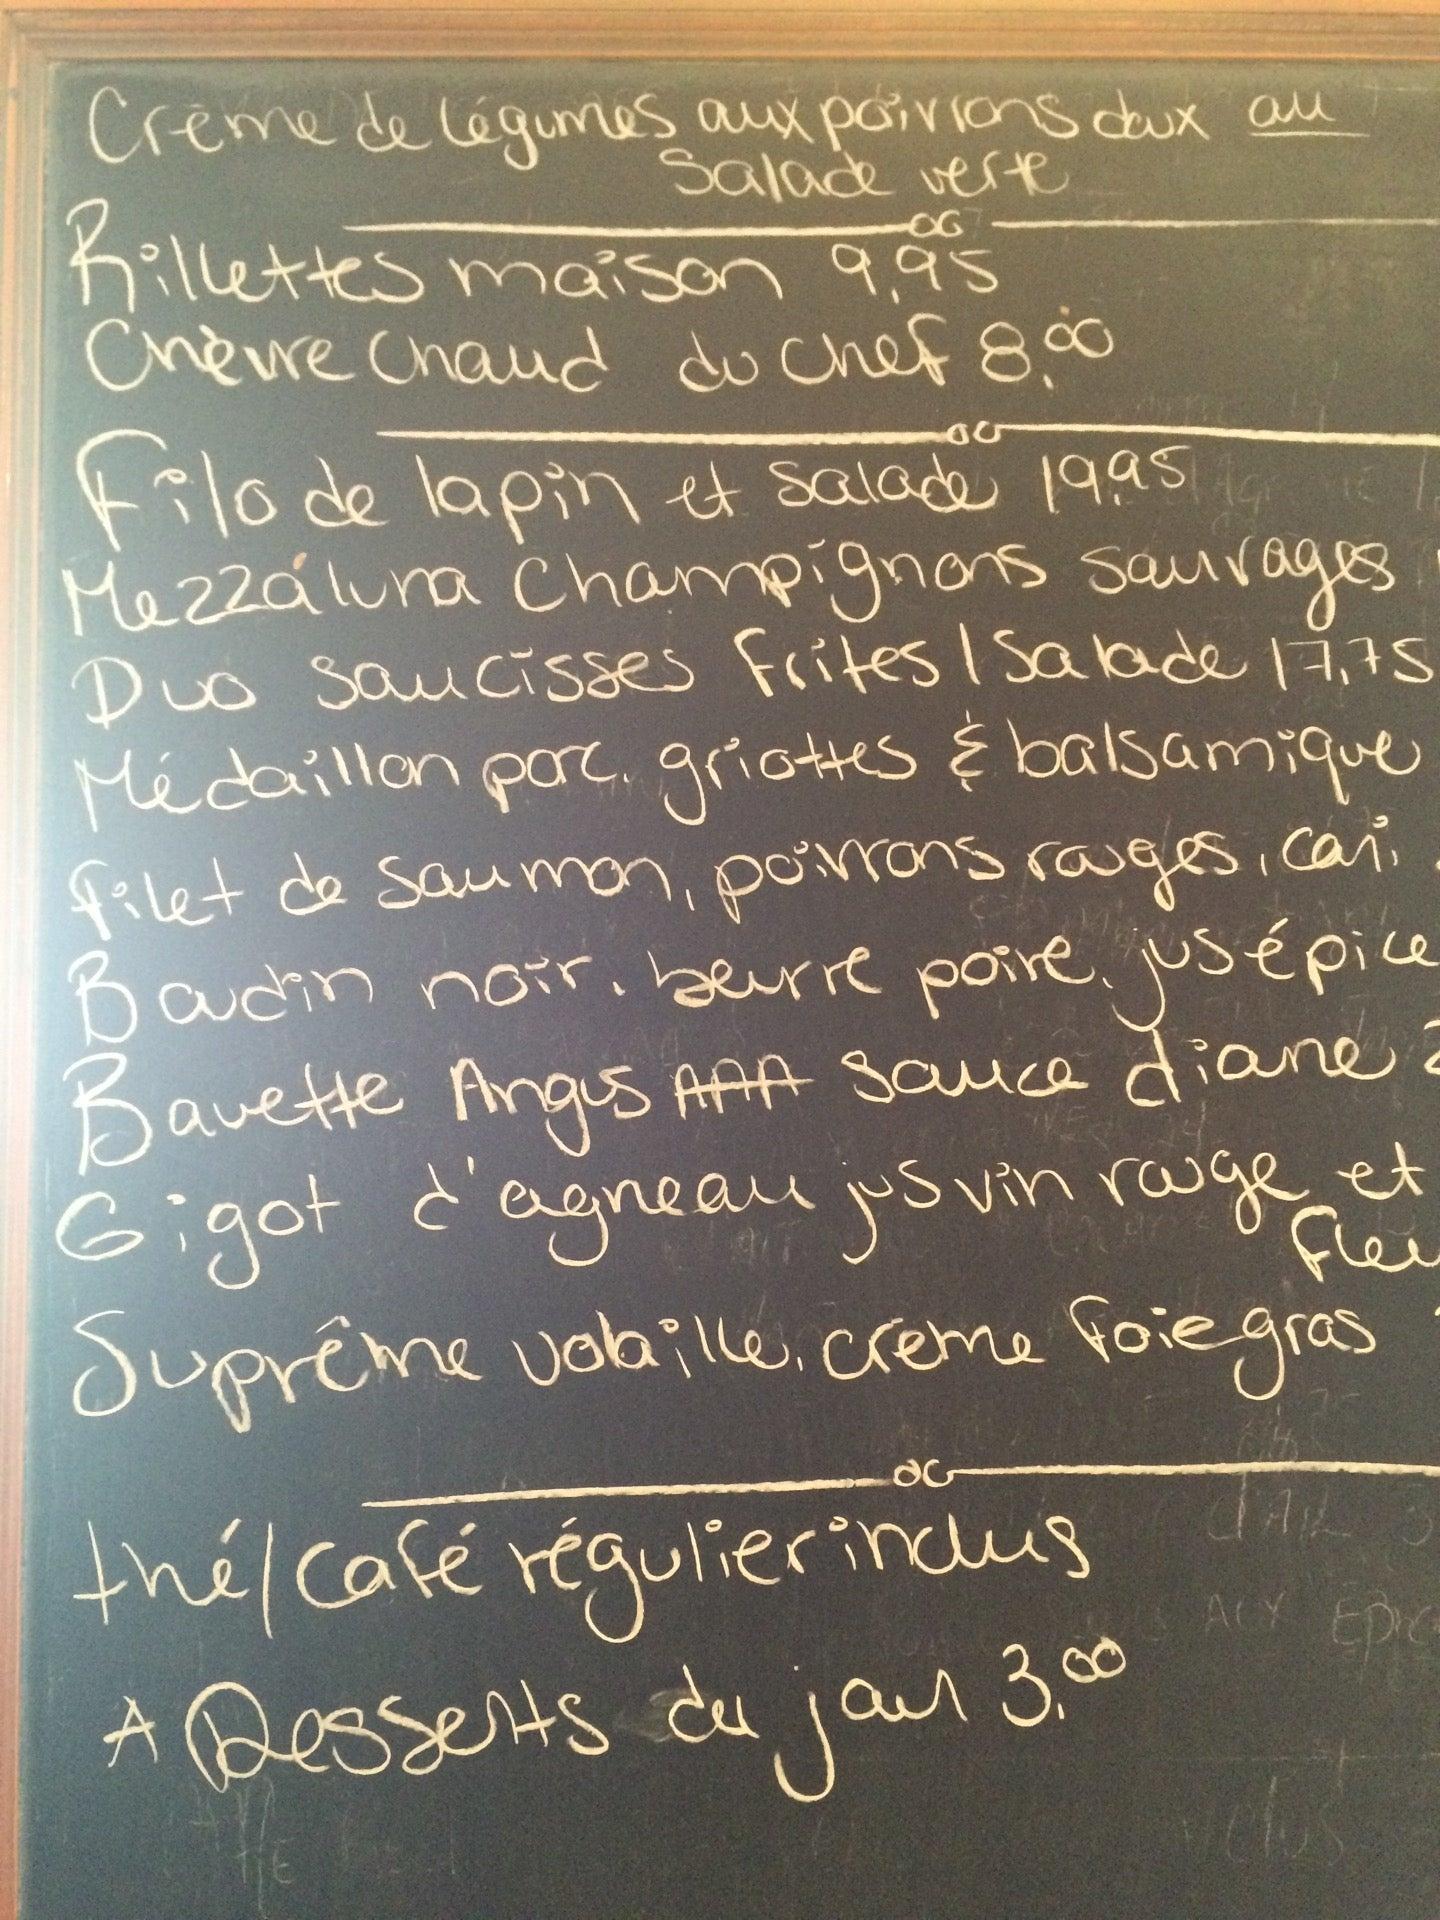 Crème de légumes aux poivrons doux ou
Salade verte
Rillettes maison 9,95
Chèvre Chaud du chef 8,00
Filo de lapin et salade 19,95
Mezzáluna Champignons sauvages
Duo saucisses Frites/Salade 17,75
Médaillon porc, griottes & balsamique
Filet de saumon, poivrons rouges, cari,
Boudin noir, beurre poire, jus épice
Bavette Angus AAA sauce diane 2
Gigot d'agneau jus vin rouge et
Fleu
Suprême volaille, crème foie gras
thé/Café régulier inclus
A Desserts du jour 3,00